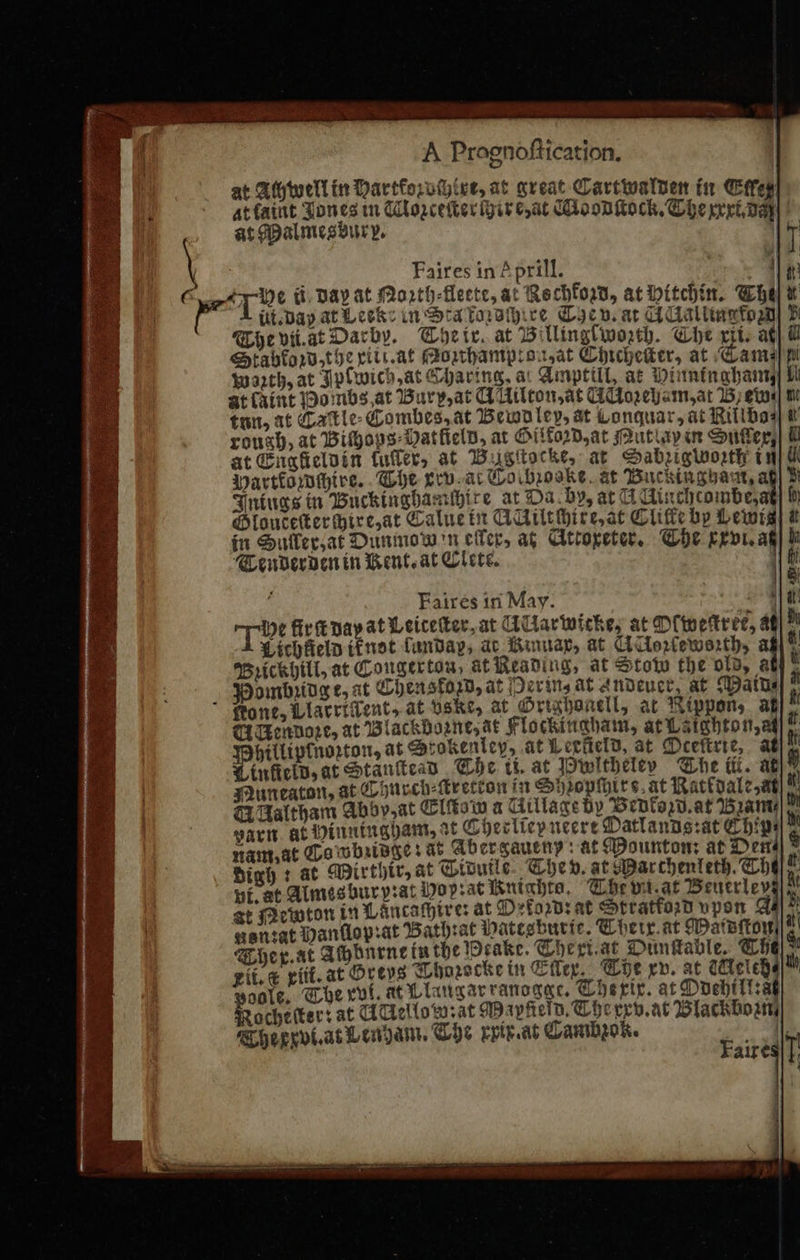 A Prognostication.
at Ashwell in Hartfordshire, at great Cartwalden in Essex
at saint Jones in Worcestershire, at Woodstock. The xxxi. day
at Malmesbury.
Faires in Aprill.
The ii. day at North-fleete, at Rochford, at Hitchin. The
iii. day at Leeke in Stafordshire The v. at Wallingford
The vii. at Darby. The ix. at Billingsworth. The xii. at
Stabford, the xiii. at Northampton, at Chichester, at
worth, at Ipswich, at Charing, at Amptill, at Hinningham,
at saint Pombs, at Bury, at Wilton, at Woreham, at
tun, at Castle-Combes, at Bewdley, at Lonquar, at
rough, at Bishops-Hatfield, at Gilford, at Nutlay in Sussex,
at Engfieldin sussex, at Bugstocke, at Sabrigworth in
Hartfordshire. The xxv. at Colbrooke, at Buckingham, at
Inings in Buckinghamshire at Da. by, at Winchcombe, at
Gloucestershire, at Calue in Wiltshire, at Cliffe by Lewis
in Sussex, at Dunmow in essex, at Uttoxeter. The xxvi. at
Tenderden in Kent, at Clete.
Faires in May.
The first day at Leicester, at Warwicke, at Oswestree, at
Lichfield if not sunday, at Kinnar, at Worlseworth, at
Brickhill, at Congerton, at Reading, at Stow the old, at
Pombridge, at Chensford, at Perin, at Andeuer, at
stone, Llatrissent, at Vske, at Grighonell, at Rippon, at
Wendore, at Blackborne, at Flockingham, at Laighton, at
Phillipsnorton, at Stokenley, at Lexfield, at Ocestrie, at
Linfield, at Stanstead The ii. at Pwltheley The iii. at
Nuneaton, at Church-stretton in Shropshire, at Ratsdale, at
Waltham Abby, at Elstow a Village by Bedford. at
yarn at Hinningham, at Chersiey neere Oatlands: at
nam, at Cowbridge: at Abergaueny: at Mounton: at
bigh: at Mirthir, at Tiduile. The v. at Marchenleth. The
vi. at Almesbury: at Hoy: at Knighto. The vii. at Beuerley
at Newton in Lancashire: at Oxford: at Stratford vpon
uon: at Hanslop: at Bath: at Hatesburie. The ix. at Maidston
The x. at Ashburne in the Peake. The xi. at Dunstable. The
xii. & xiii. at Greys Thorocke in Essex. The xv. at
poole. The xvi. at Llangarranogge. The xix. at Odehill: at
Rochester: at Wellow: at Mayfield. The xxv. at Blackborn
The xxvi. at Lenham. The xxix. at Cambrok.
Faires